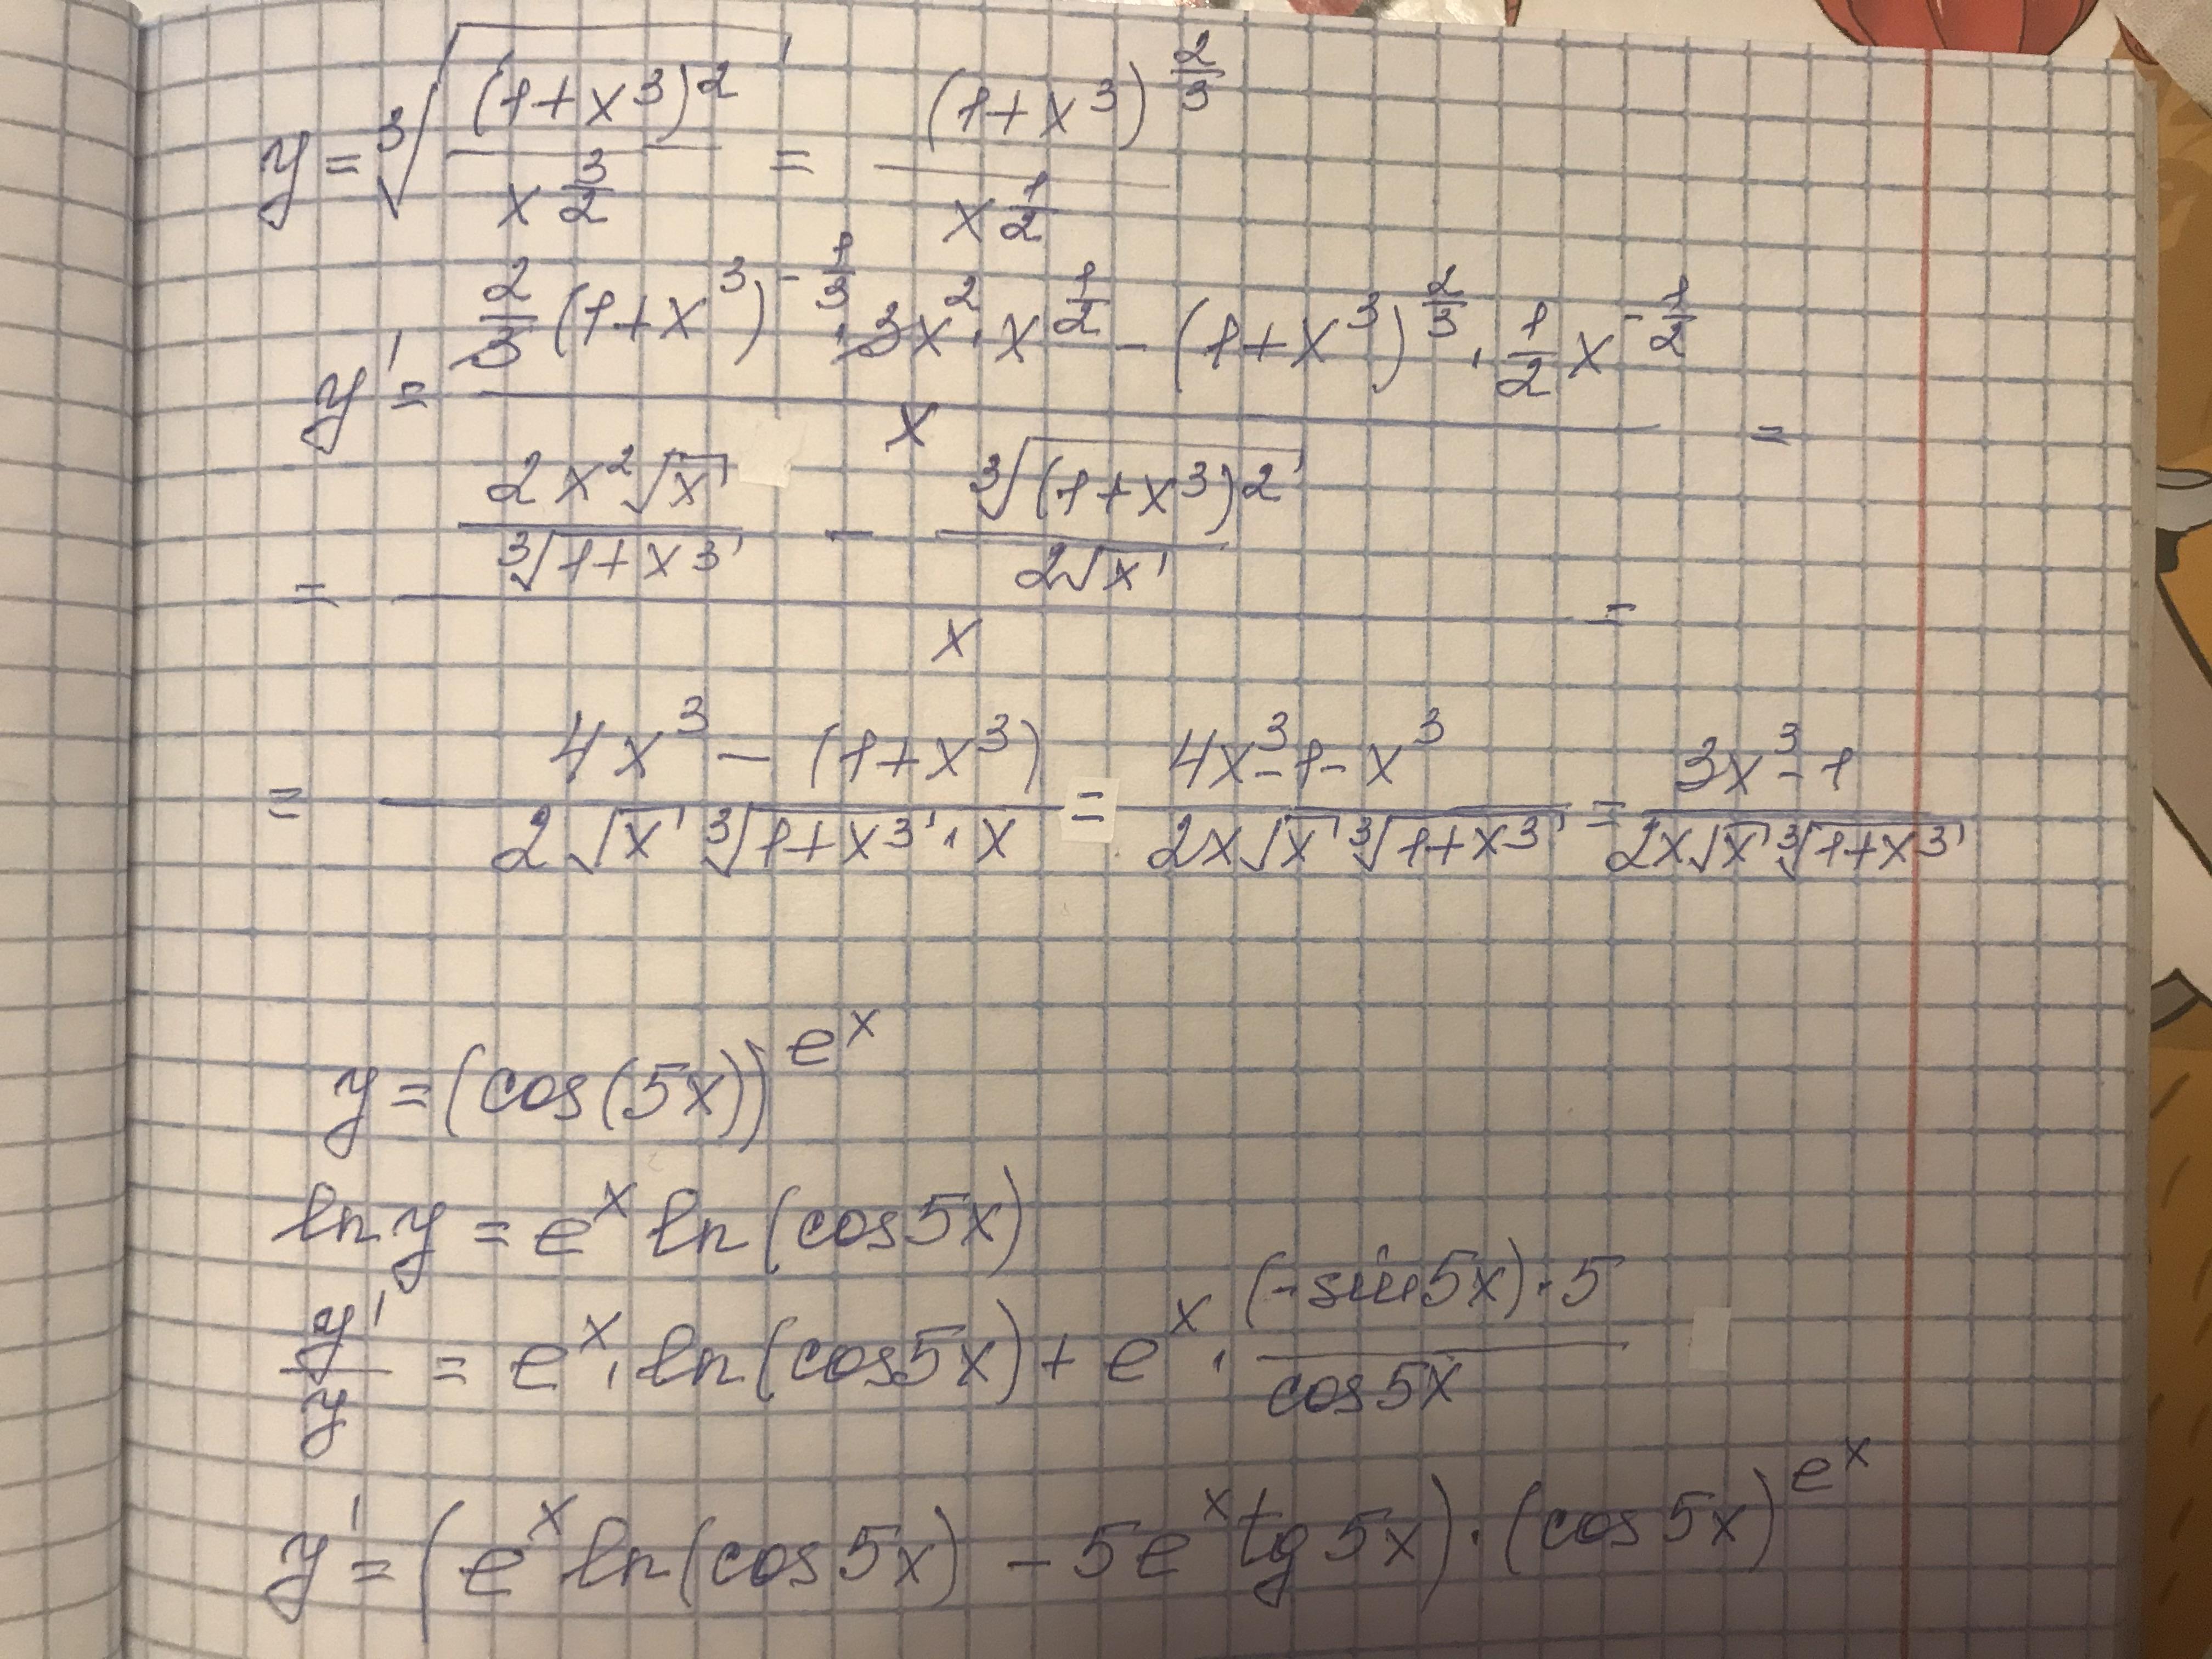 y = ∛((1+x³)² / x^(3/2)) = (1+x³)^(2/3) / x^(1/2)
y' = (2/3 (1+x³)^(-1/3) · 3x² · x^(1/2) - (1+x³)^(2/3) · 1/2 x^(-1/2)) / x =
= (2x²√x / ∛(1+x³) - ∛((1+x³)²) / 2√x) / x =
= (4x³ - (1+x³)) / (2√x ∛(1+x³) · x) = (4x³ - 1 - x³) / (2x√x ∛(1+x³)) = (3x³ - 1) / (2x√x ∛(1+x³))
y = (cos(5x))^(e^x)
ln y = e^x ln(cos5x)
y'/y = e^x · ln(cos5x) + e^x · ((-sin5x) · 5) / cos5x
y' = (e^x ln(cos5x) - 5e^x tg5x) · (cos5x)^(e^x)